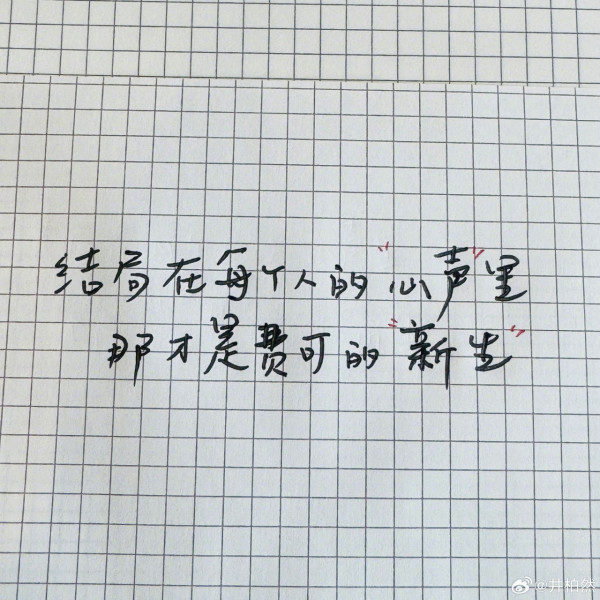 结局在每个人的“心声”里
那才是费可的“新生”
@井柏然